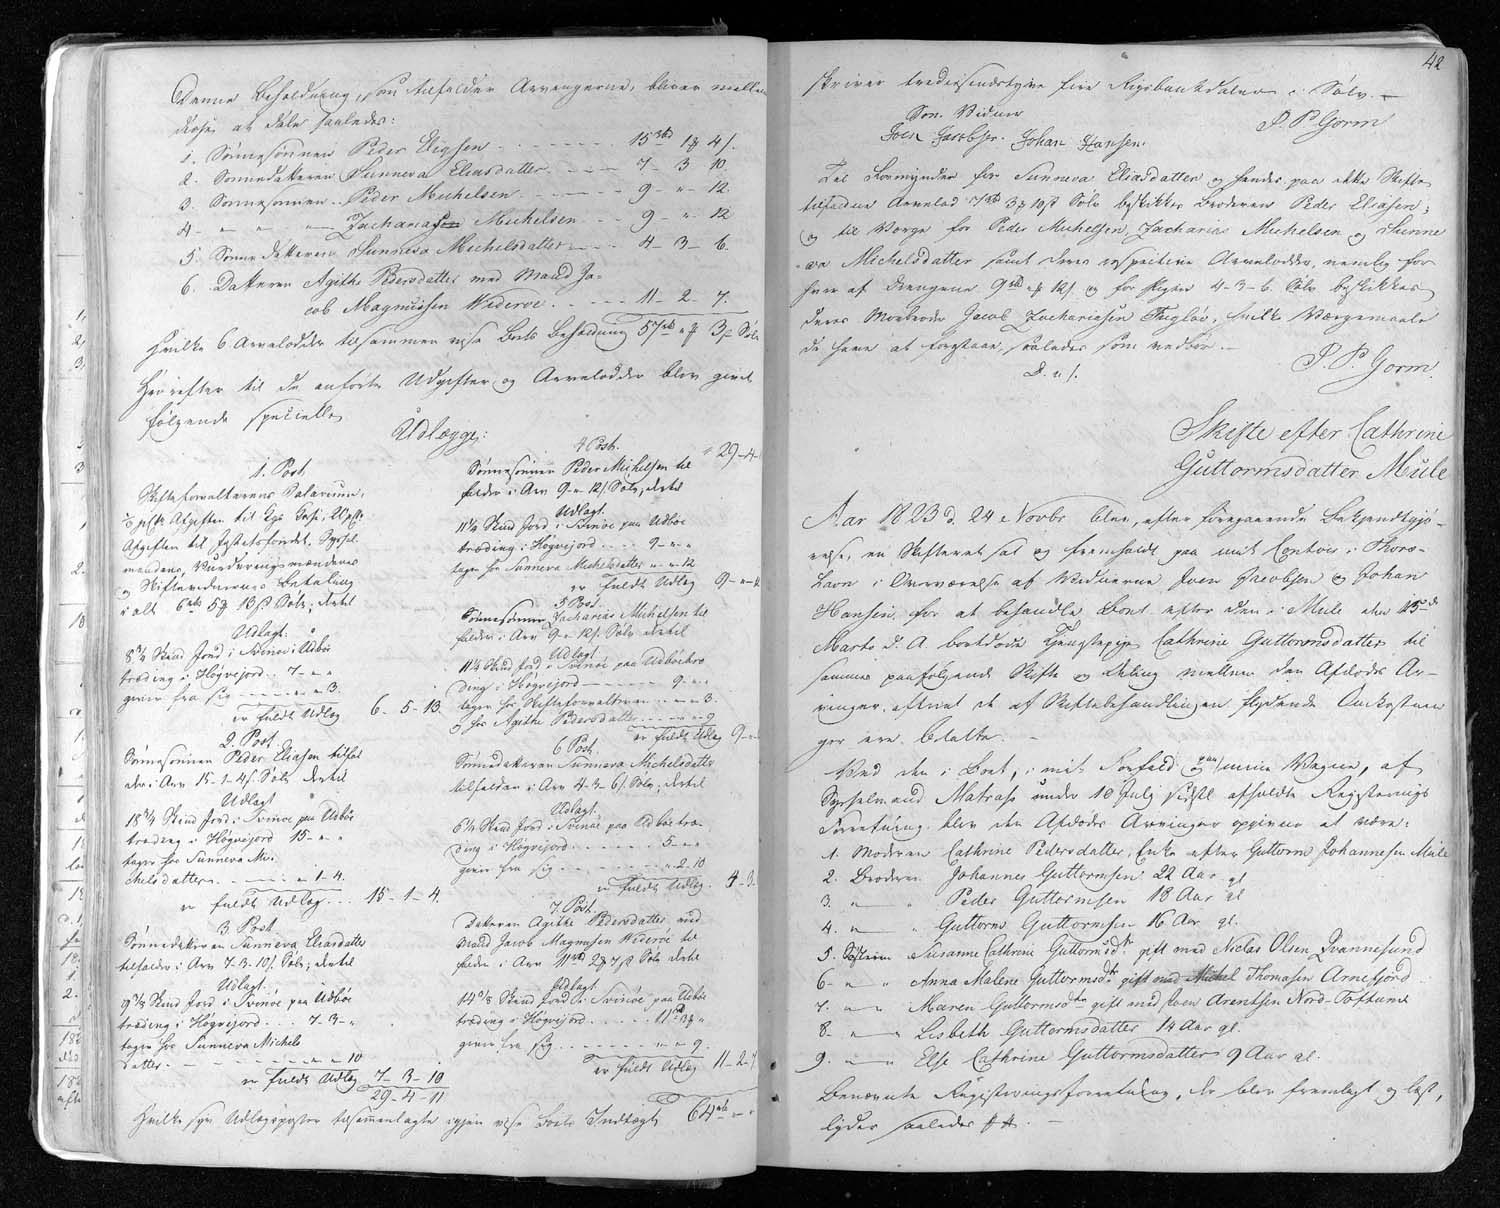 Denne Beholdning, som tilfalder Arvengerne, bliver mellem
disse at dele saaledes:
1. Sønnesønnen Peder Eliasen - - - - 15 rbd 1 ₰ 4 s.
2. Sønnedatteren Sunneva Eliasdatter - - - 7 - 3 10.
3. Sønnesønnen Peder Michelsen - - - 9 - " - 12.
4. " " " Zacharias Michelsen - - - 9 - " 12
5. Sønnedatteren Sunneva Michelsdatter - - - 4 - 3 - 6.
6. Datteren Agithe Pedersdatter med Mand Ja-
cob Magnussen Wideroe. - - - 11 - 2 - 7.
hvilke 6 Arvelodder tilsammen vise Boets Beholdning 57 rbd " 3 s Sølv
Herefter til de anførte Udgifter og Arvelodder blev givet
følgende specielle
Udlægge:
1. Post.
Skifteforvalterens Salarium,
Afgiften til
Afgiften til Justitsfondet, Syssel-
mandens, Vurderingsmændenes
og Skiftevidnernes Betaling
i alt 6 rbd 5 ₰ 13 s Sølv; dertil
Udlagt:
8¾ Skind Jord i Svinøe i Udbøe
træding i Høgvejord 7 - " "
giver fra sig - - - " " 3.
er fuldt Udlæg 6 - 5 - 13.
2. Post.
Sønnesønnen Peder Eliasen tilfal
den i Arv 15 - 1 - 4 s. Sølv dertil
Udlagt
18¾ Skind Jord i Svinøe paa Udbøe
træding i Høgvejord 15 - " "
tager hos Sunneva Mi-
chelsdatter - - - " 1 - 4.
er fuldt Udlæg - - - 15 - 1 - 4.
3 Post
Sønnedatteren Sunneva Eliasdatter
tilfalden i Arv 7 - 3 - 10 s. Sølv; dertil
Udlagt
Skind Jord i Svinøe paa Udbøe
træding i Høgvejord - - - 7 - 3 - "
tager hos Sunneva Michels
datter - - - " " 10
er fuldt Udlæg 7 - 3 - 10
29 - 4 - 11
4 Post. 29 - 4 -
Sønnesønnen Peder Michelsen til
falden i Arv 9 - " 12 s. Sølv; dertil
Udlagt
11¼ Skind Jord i Svinøe paa Udbøe
træding i Høgvejord - - - 9 - " "
tager hos Sunneva Michelsdatter " - " 12
er fuldt Udlæg 9 - " -
5 Post.
Sønnesønnen Zacharias Michelsen til
falden i Arv 9 - " 12 s. Sølv dertil
Udlagt
11¼ Skind Jord i Svinøe paa Udbøetræ
ding i Høgvejord - - - 9 - " "
tager hos Skifteforvalteren - - " " 3.
o hos Agithe Pedersdatter - - - " " 9
er fuldt Udlæg 9 - "
6 Post.
Sønnedatteren Sunneva Michelsdatter
tilfalden i Arv 4 - 3 - 6 s. Sølv; dertil
Udlagt:
6¼ Skind Jord i Svinøe paa Udbøetræ-
ding i Høgvejord - - - 5 - " "
giver fra sig - - - " 2 - 10
er fuldt Udlæg. 4 - 3 -
7. Post.
Datteren Agithe Pedersdatter med
Mand Jacob Magnusen Wideroe til
falden i Arv 11 rbd 2 ₰ 7 s Sølv dertil
Udlagt
14⅝ Skind Jord i Svinøe paa Udbøe
træding i Høgvejord - - - 11 3 "
giver fra sig - - - " " 9.
er fuldt Udlæg 11 - 2 - 7
hvilke syv Udlægsposter tilsammenlagte igjen vise Boets Indtægt 64 rbd " "
42
skriver tredesindstyve fire Rigsbankdaler i Sølv. -
Som Vidner P. P. Gorm
Joen Jacobsen. Johan Hansen.
Til Formynder for Sunneva Eliasdatter og hendes paa dette Skifte
tilfaldne Arvelod 7 rbd 3 ₰ 10 s Sølv beskikkes Broderen Peder Eliasen;
og til Værge for Peder Michelsen, Zacharias Michelsen og Sunne
va Michelsdatter samt deres respective Arvelodder, nemlig for
hver af Drengene 9 rbd " ₰ 12 s. og for Pigen 4 - 3 - 6. Sølv beskikkes
deres Morbroder Jacob Zachariasen Fugloe, hvilke Værgemaale
de have at forestaae, saaledes som vedbør. -
D. u. s. P. P. Gorm.
Skifte efter Cathrine
Guttormsdatter Mule
Aar 1823 d. 24 Novbr blev, efter foregaaende Bekjendtgjø-
relse, en Skifteret sat og fremholdt paa mit Contoir i Thors-
havn i Overværelse af Vidnerne Joen Jacobsen og Johan
Hansen, for at behandle Boet efter den i Mule den 15de
Marts d. A. bortdøde Tjenestepige Cathrine Guttormsdatter til
sammes paafølgende Skifte og Deling mellem den Afdødes Ar-
vinger, efterat de af Skiftebehandlingen flydende Omkostnin
ger ere betalte. -
Ved den i Boet, i mit Forfald og paa mine Vegne, af
Sysselmand Matras under 10 July sidstl. afholdte Registerings
Forretning blev den Afdødes Arvinger opgivne at være:
1. Moderen Cathrine Pedersdatter, Enke efter Guttorm Johannesen Mule
2. Broderen Johannes Guttormsen 22 Aar gl.
3. " " Peder Guttormsen 18 Aar gl
4. " " Guttorm Guttormsen 16 Aar gl.
5. Søsteren Susanne Cathrine Guttormsdtr gift med Niclas Olsen Qvannesund
6 - " " Anna Malene Guttormsdtr gift med Michel Thomasen Arnefjord
7. - " " Maren Guttormsdtr gift med Joen Arentsen Nord-Toftum
8. " " Lisbeth Guttormsdatter 14 Aar gl.
9. " " Else Cathrine Guttormsdatter 9 Aar gl.
Benævnte Registeringsforretning, der blev fremlagt og læst,
lyder saaledes ##. -